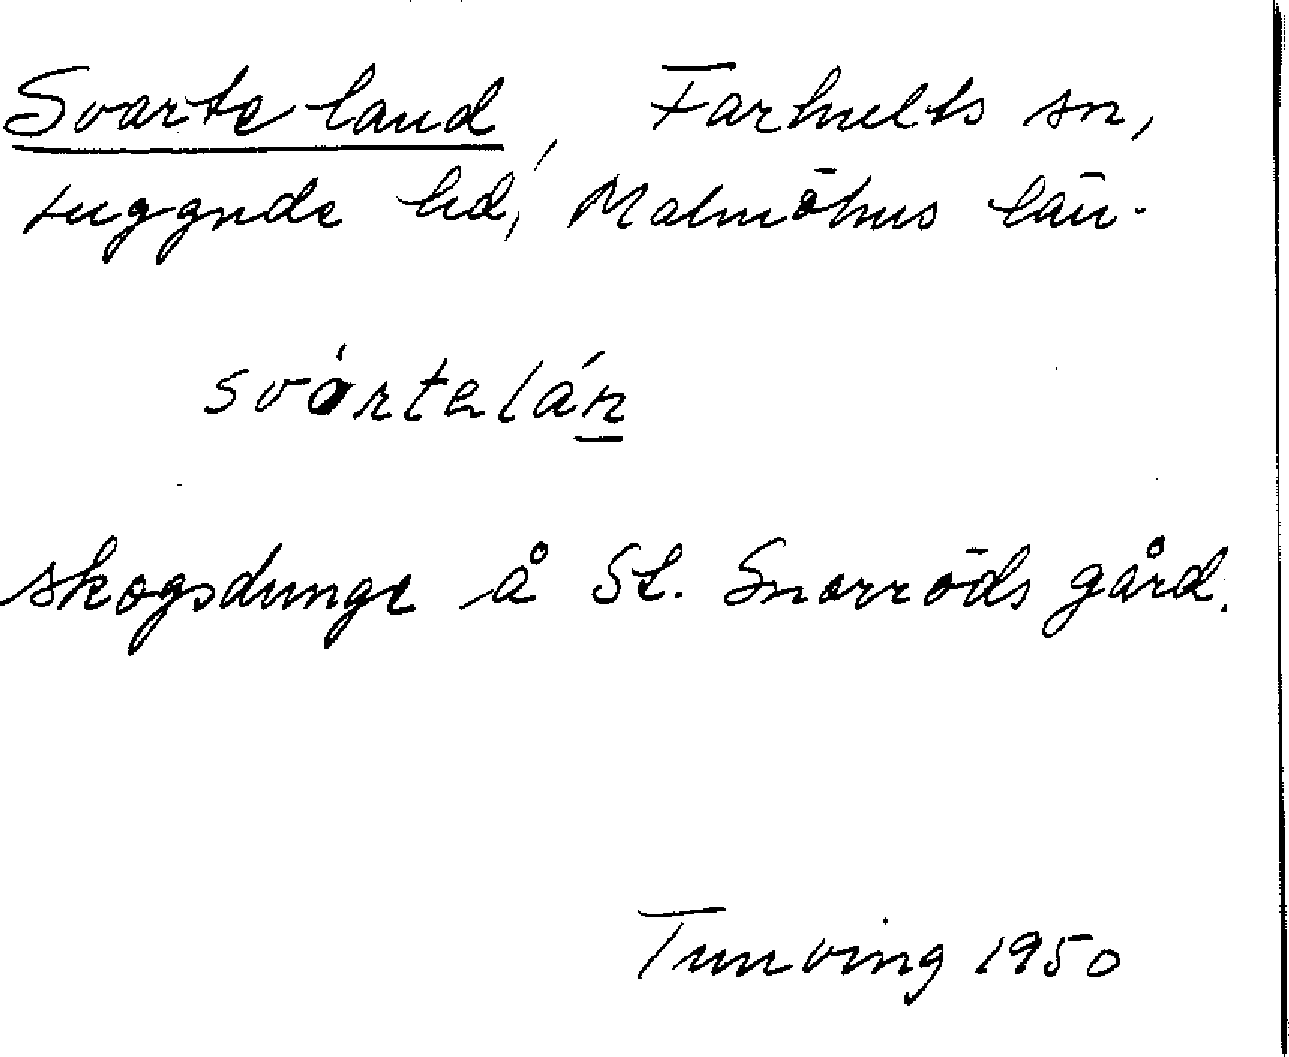 Svarte land, Farhults sn,
Luggude hd, Malmöhus län.
svàrtelán
skogsdunge å St. Snorröds gård.
Tunving 1950